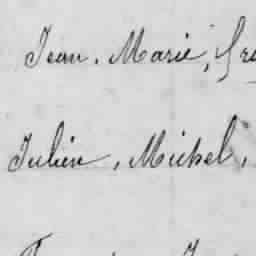 Jean, Marie,
Julien, Michel,